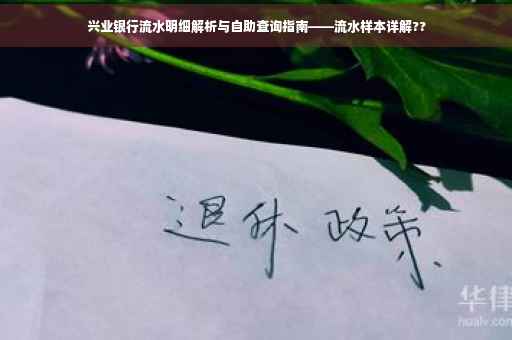 兴业银行流水明细解析与自助查询指南——流水样本详解??
退休 政策
华律
hualv.com